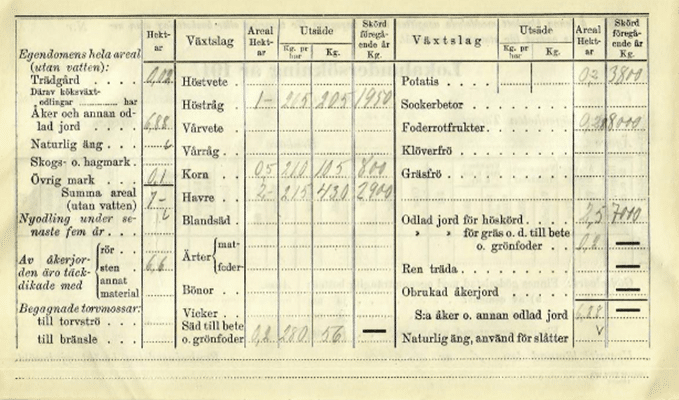 Hekt-
ar
Egendomens hela areal
(utan vatten):
Trädgård . . . . 0,02
Därav köksväxt-
odlingar ......... har
Åker och annan od-
lad jord . . . . 6,88
Naturlig äng . . .
Skogs- o. hagmark .
Övrig mark . . . . 0,1
Summa areal
(utan vatten) 7-
Nyodling under se-
naste fem år . . .
Av åkerjor-
den äro täck-
dikade med
rör . .
sten . 6,6
annat
material
Begagnade torvmossar:
till torvströ . . .
till bränsle . . .
Växtslag Areal Hekt-ar Utsäde Kg. pr har Kg. Skörd föregå-ende år Kg.
Höstvete .
Höstråg 1- 215 205 1950
Vårvete .
Vårråg . .
Korn . . 0,5 210 105 800
Havre . . 2- 215 430 2900
Blandsäd .
Ärter mat-
foder-
Bönor . .
Vicker . .
Säd till bete
o. grönfoder 0,2 280 56 —
Växtslag Utsäde Kg. pr har Kg. Areal Hekt-ar Skörd föregå-ende år Kg.
Potatis . . 0,2 3800
Sockerbetor . . . .
Foderrotfrukter . . . 8000
Klöverfrö . . . .
Gräsfrö . . . . .
Odlad jord för höskörd . . . . . 2,5 7000
» » för gräs o. d. till bete
o. grönfoder . . . 0,2 —
Ren träda . . . . . —
Obrukad åkerjord . . . . . —
S:a åker o. annan odlad jord 6,88 —
Naturlig äng, använd för slåtter . .